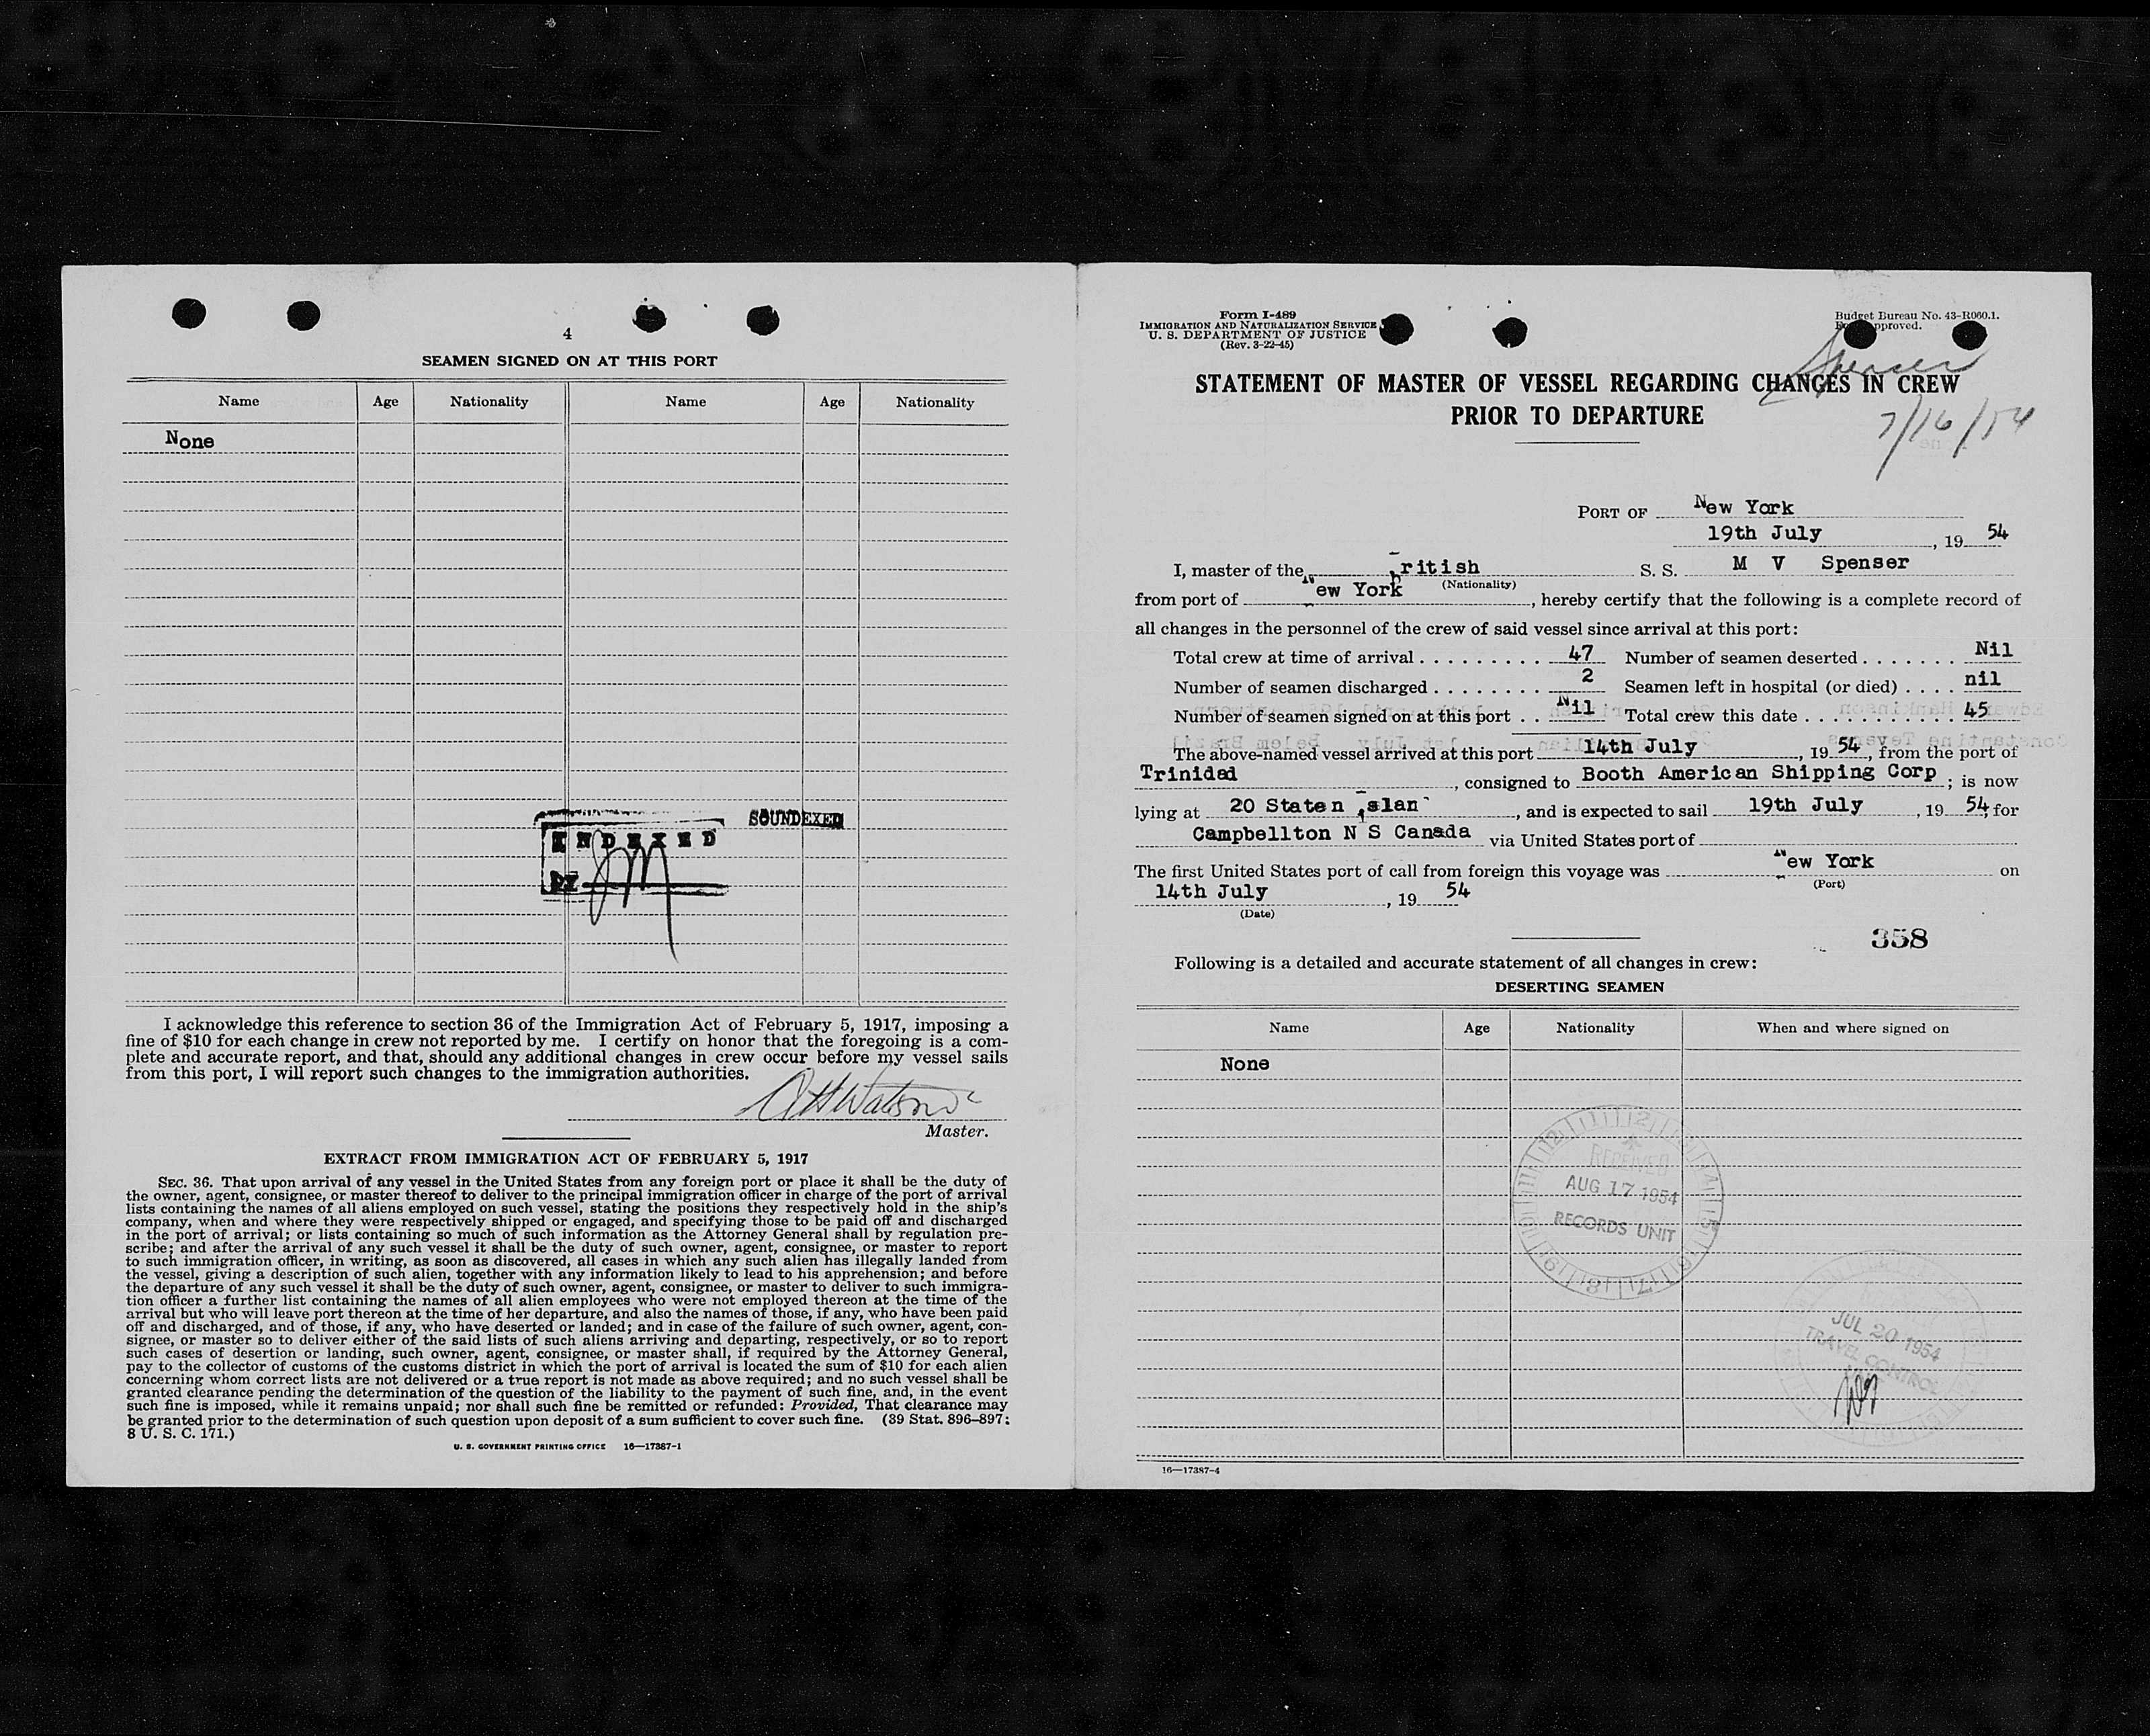 4
SEAMEN SIGNED ON AT THIS PORT
Name Age Nationality Name Age Nationality
None
SOUNDEXED
INDEXED
BY
I acknowledge this reference to section 36 of the Immigration Act of February 5, 1917, imposing a
fine of $10 for each change in crew not reported by me. I certify on honor that the foregoing is a com-
plete and accurate report, and that, should any additional changes in crew occur before my vessel sails
from this port, I will report such changes to the immigration authorities.
Watson
Master.
EXTRACT FROM IMMIGRATION ACT OF FEBRUARY 5, 1917
SEC. 36. That upon arrival of any vessel in the United States from any foreign port or place it shall be the duty of
the owner, agent, consignee, or master thereof to deliver to the principal immigration officer in charge of the port of arrival
lists containing the names of all aliens employed on such vessel, stating the positions they respectively hold in the ship's
company, when and where they were respectively shipped or engaged, and specifying those to be paid off and discharged
in the port of arrival; or lists containing so much of such information as the Attorney General shall by regulation pre-
scribe; and after the arrival of any such vessel it shall be the duty of such owner, agent, consignee, or master to report
to such immigration officer, in writing, as soon as discovered, all cases in which any such alien has illegally landed from
the vessel, giving a description of such alien, together with any information likely to lead to his apprehension; and before
the departure of any such vessel it shall be the duty of such owner, agent, consignee, or master to deliver to such immigra-
tion officer a further list containing the names of all alien employees who were not employed thereon at the time of the
arrival but who will leave port thereon at the time of her departure, and also the names of those, if any, who have been paid
off and discharged, and of those, if any, who have deserted or landed; and in case of the failure of such owner, agent, con-
signee, or master so to deliver either of the said lists of such aliens arriving and departing, respectively, or so to report
such cases of desertion or landing, such owner, agent, consignee, or master shall, if required by the Attorney General,
pay to the collector of customs of the customs district in which the port of arrival is located the sum of $10 for each alien
concerning whom correct lists are not delivered or a true report is not made as above required; and no such vessel shall be
granted clearance pending the determination of the question of the liability to the payment of such fine, and, in the event
such fine is imposed, while it remains unpaid; nor shall such fine be remitted or refunded: Provided, That clearance may
be granted prior to the determination of such question upon deposit of a sum sufficient to cover such fine. (39 Stat. 896–897;
8 U. S. C. 171.)
U. S. GOVERNMENT PRINTING OFFICE 16—17387-1
Form I-489
IMMIGRATION AND NATURALIZATION SERVICE
U. S. DEPARTMENT OF JUSTICE
(Rev. 3-22-45)
Budget Bureau No. 43-R060.1.
pproved.
Spenser
7/16/54
STATEMENT OF MASTER OF VESSEL REGARDING CHANGES IN CREW
PRIOR TO DEPARTURE
PORT OF New York
19th July, 19 54
I, master of the British S. S. M V Spenser
(Nationality)
from port of New York, hereby certify that the following is a complete record of
all changes in the personnel of the crew of said vessel since arrival at this port:
Total crew at time of arrival . . . . . . . . . 47 Number of seamen deserted . . . . . . . Nil
Number of seamen discharged . . . . . . . . 2 Seamen left in hospital (or died) . . . . nil
Number of seamen signed on at this port . . Nil Total crew this date . . . . . . . . . . . 45
The above-named vessel arrived at this port 14th July, 19 54, from the port of
Trinidad, consigned to Booth American Shipping Corp; is now
lying at 20 Staten Islan, and is expected to sail 19th July, 19 54, for
Campbellton N S Canada via United States port of
The first United States port of call from foreign this voyage was New York on
(Port)
14th July, 19 54
(Date)
358
Following is a detailed and accurate statement of all changes in crew:
DESERTING SEAMEN
Name Age Nationality When and where signed on
None
RECEIVED
AUG 17 1954
RECORDS UNIT
JUL 20 1954
TRAVEL CONTROL
16—17387-4